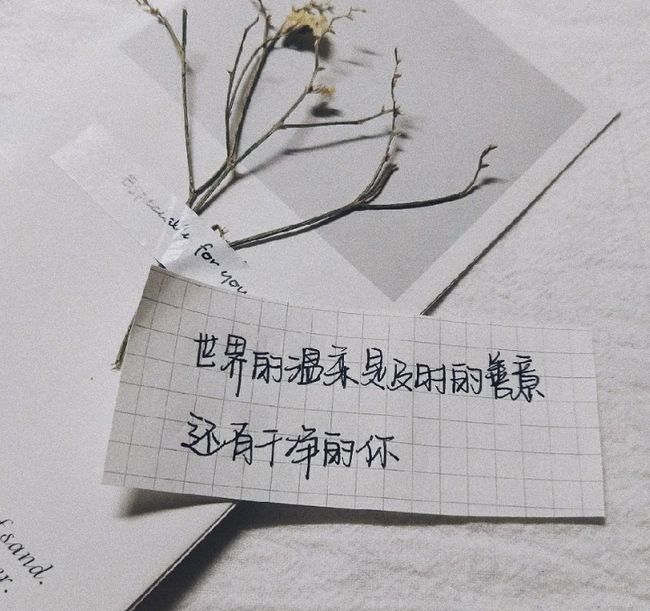 Especially for you
世界的温柔是及时的善意
还有干净的你
sand.